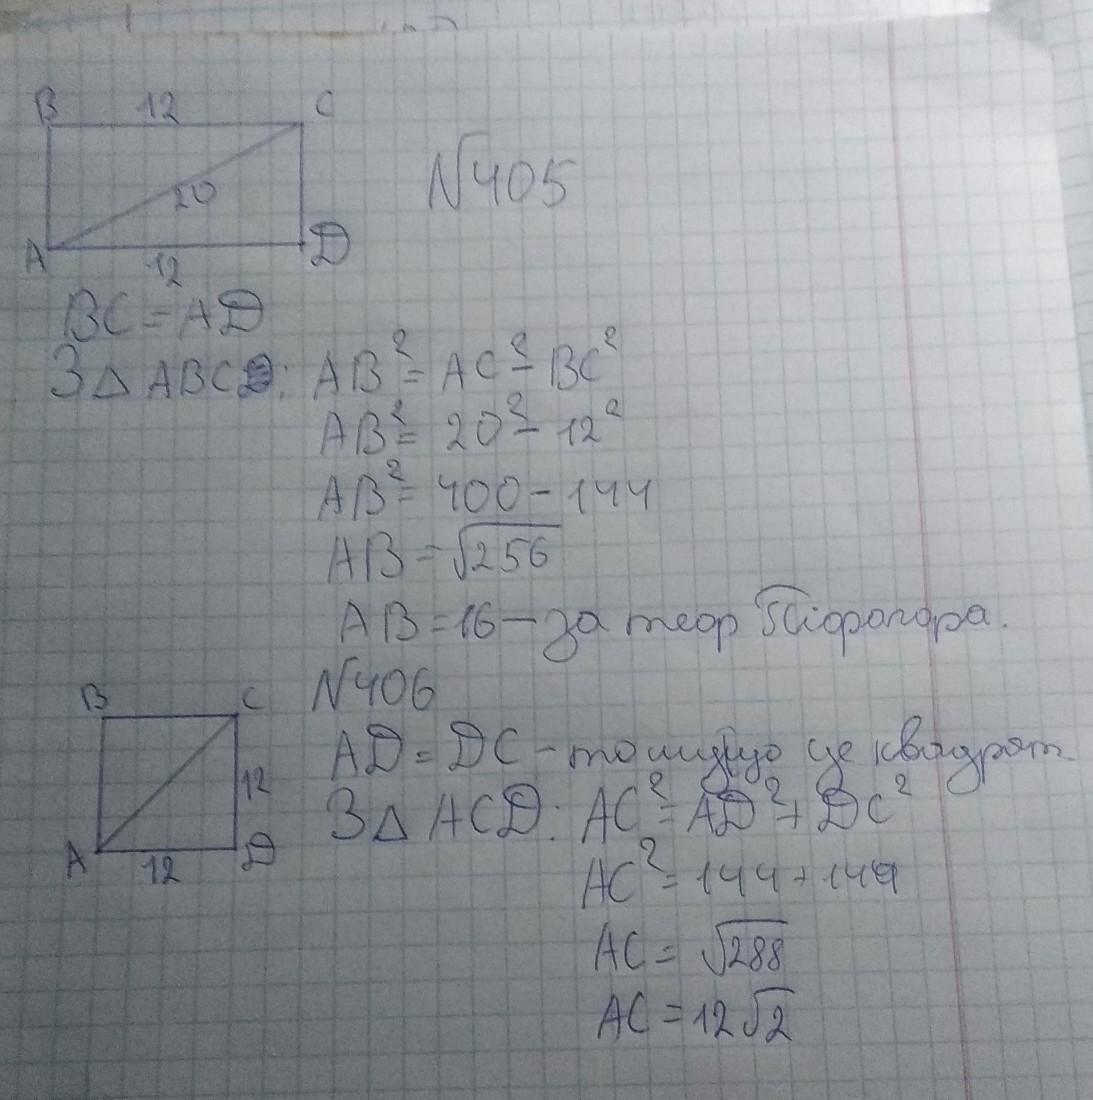 B 12 C
20
A 12 D
N405
BC = AD
З △ ABC: AB² = AC² - BC²
AB² = 20² - 12²
AB² = 400 - 144
AB = √256
AB = 16 - за теор Піфагора.
N406
B C
12
A 12 D
AD = DC - тому що це квадрат
З △ ACD: AC² = AD² + DC²
AC² = 144 + 144
AC = √288
AC = 12√2